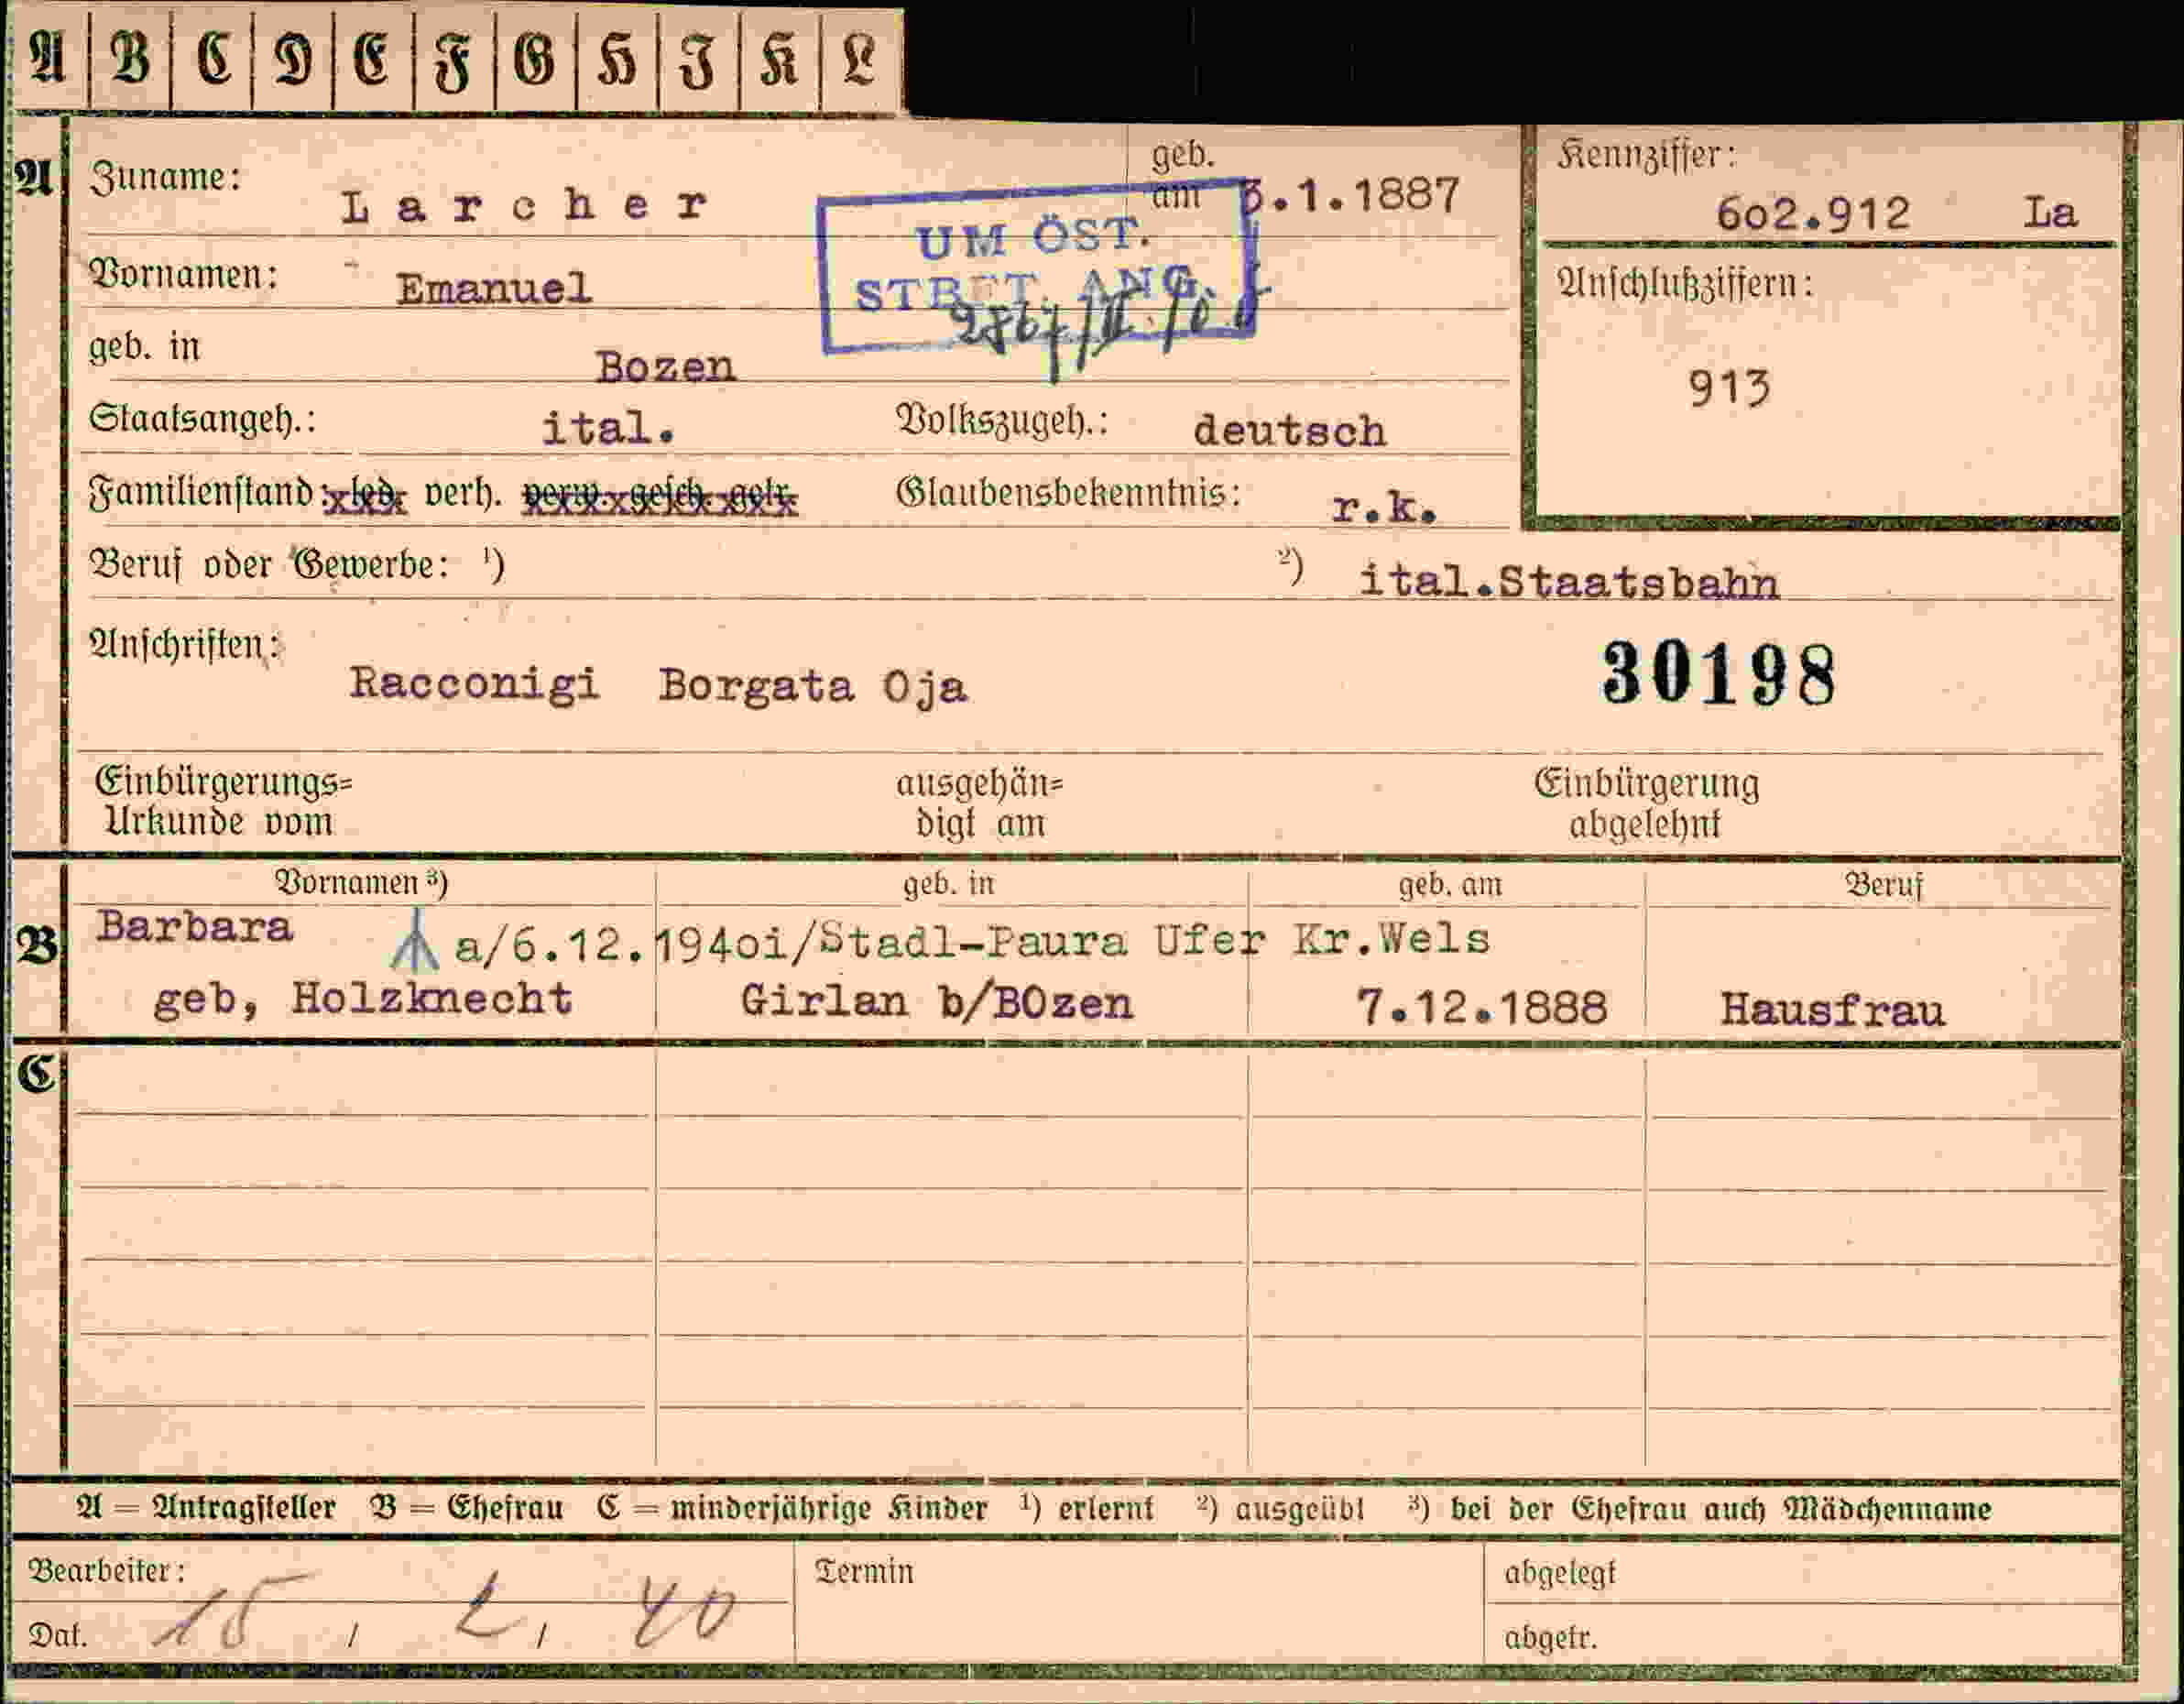 A B C D E F G H I K L
A Zuname: Larcher geb. am 3.1.1887
Kennziffer: 602.912 La
UM ÖST. STBET. ANG.
Vornamen: Emanuel
Anschlußziffern: 913
geb. in Bozen
Staatsangeh.: ital. Volkszugeh.: deutsch
Familienstand: led. verh. verw. gesch. getr. Glaubensbekenntnis: r.k.
Beruf oder Gewerbe: ¹) ²) ital.Staatsbahn
Anschriften: Racconigi Borgata Oja
30198
Einbürgerungs=Urkunde vom ausgehän=digt am Einbürgerung abgelehnt
Vornamen ³) geb. in geb. am Beruf
B Barbara a/6.12.194oi/Stadl-Paura Ufer Kr.Wels
geb, Holzknecht Girlan b/BOzen 7.12.1888 Hausfrau
C
A = Antragsteller B = Ehefrau C = minderjährige Kinder ¹) erlernt ²) ausgeübt ³) bei der Ehefrau auch Mädchenname
Bearbeiter: Termin abgelegt
Dat. 15, 2, 40 abgetr.